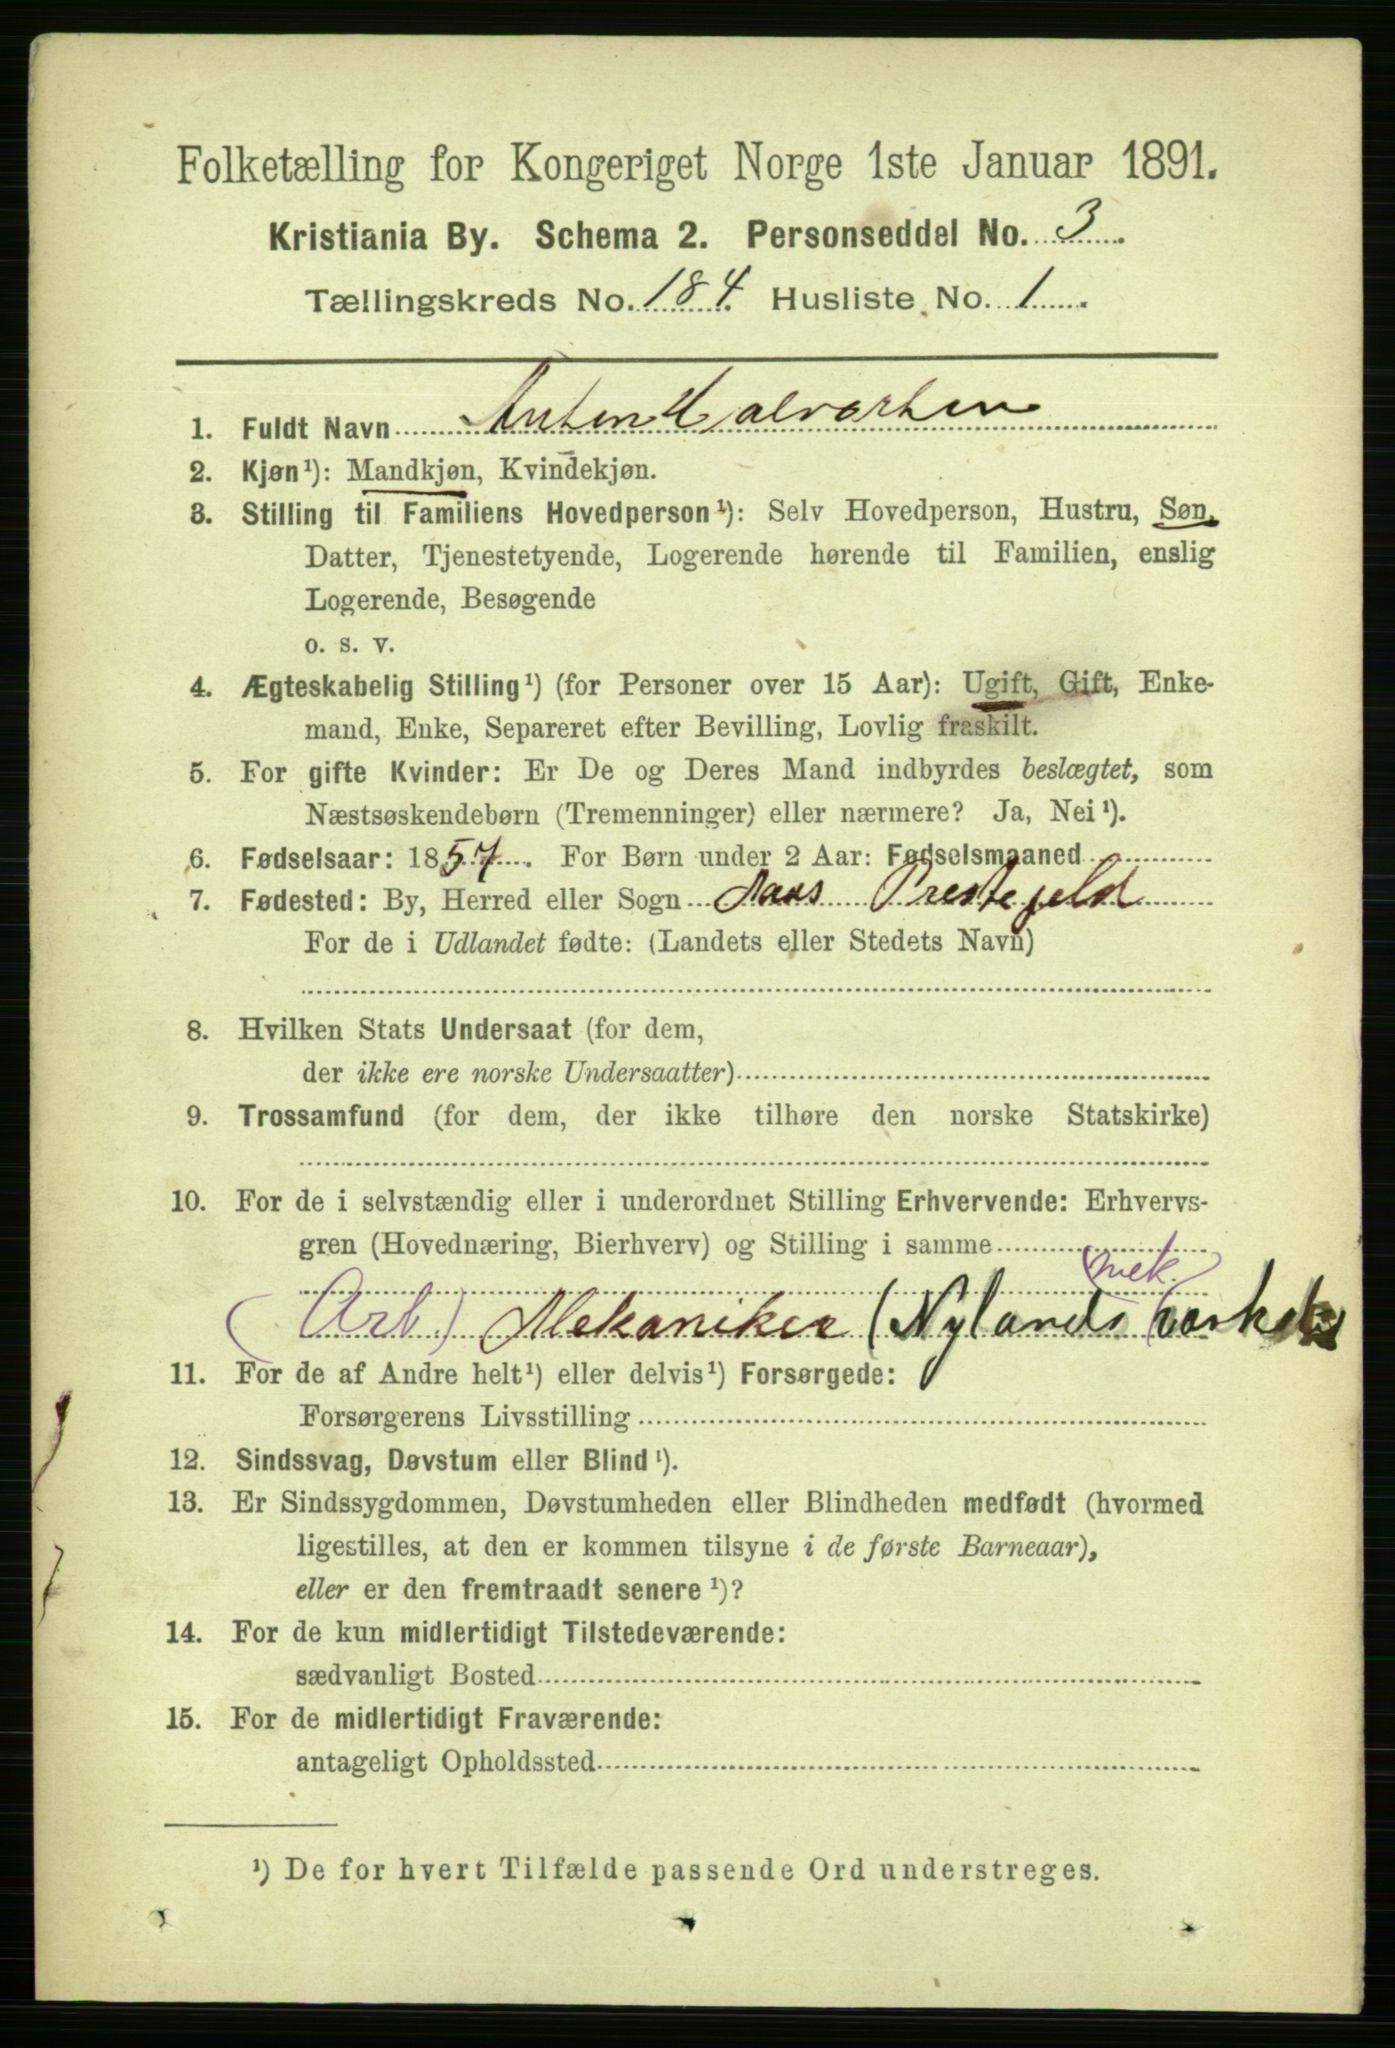 Folketælling for Kongeriget Norge 1ste Januar 1891.
Kristiania By. Schema 2. Personseddel No. 3.
Tællingskreds No. 184. Husliste No. 1.
1. Fuldt Navn Anton Halvorsen
2. Kjøn¹): Mandkjøn, Kvindekjøn.
3. Stilling til Familiens Hovedperson¹): Selv Hovedperson, Hustru, Søn,
Datter, Tjenestetyende, Logerende hørende til Familien, enslig
Logerende, Besøgende
o. s. v.
4. Ægteskabelig Stilling¹) (for Personer over 15 Aar): Ugift, Gift, Enke-
mand, Enke, Separeret efter Bevilling, Lovlig fraskilt.
5. For gifte Kvinder: Er De og Deres Mand indbyrdes beslægtet, som
Næstsøskendebørn (Tremenninger) eller nærmere? Ja, Nei¹).
6. Fødselsaar: 1857. For Børn under 2 Aar: Fødselsmaaned
7. Fødested: By, Herred eller Sogn Aaas Prestegjeld
For de i Udlandet fødte: (Landets eller Stedets Navn)
8. Hvilken Stats Undersaat (for dem,
der ikke ere norske Undersaatter)
9. Trossamfund (for dem, der ikke tilhøre den norske Statskirke)
10. For de i selvstændig eller i underordnet Stilling Erhvervende: Erhvervs-
gren (Hovednæring, Bierhverv) og Stilling i samme
(mek.)
(Arb) Mekaniker (Nylands
11. For de af Andre helt¹) eller delvis¹) Forsørgede:
Forsørgerens Livsstilling
12. Sindssvag, Døvstum eller Blind¹).
13. Er Sindssygdommen, Døvstumheden eller Blindheden medfødt (hvormed
ligestilles, at den er kommen tilsyne i de første Barneaar),
eller er den fremtraadt senere¹)?
14. For de kun midlertidigt Tilstedeværende:
sædvanligt Bosted
15. For de midlertidigt Fraværende:
antageligt Opholdssted
¹) De for hvert Tilfælde passende Ord understreges.